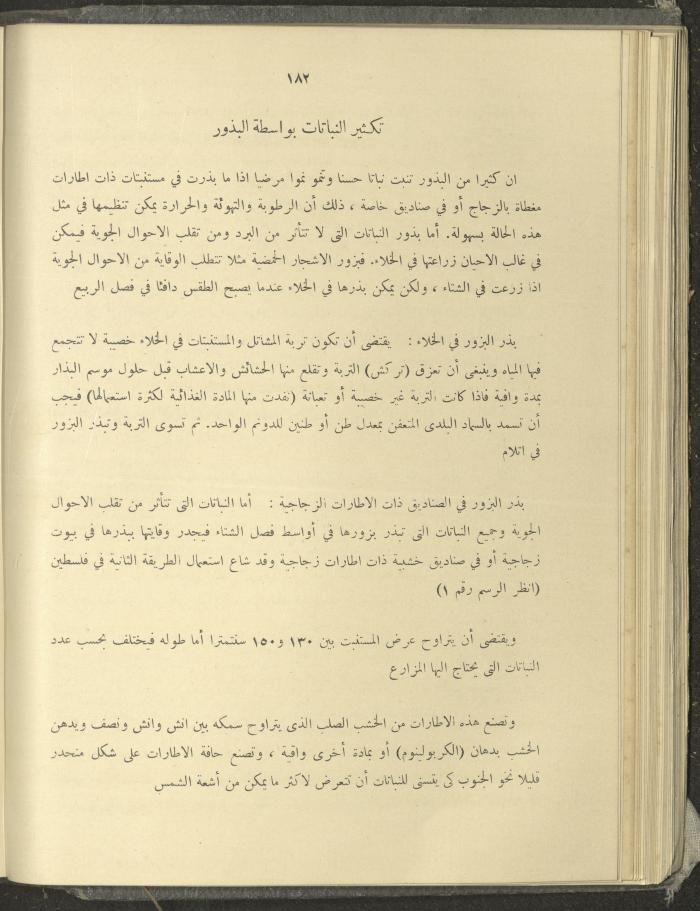 ١٨٢
تكثير النباتات بواسطة البذور
ان كثيرا من البذور تنبت نباتا حسنا وتنمو نموا مرضيا اذا ما بذرت في مستنبتات ذات اطارات
مغطاة بالزجاج أو في صناديق خاصة ، ذلك أن الرطوبة والتهوئة والحرارة يمكن تنظيمها في مثل
هذه الحالة بسهولة. أما بذور النباتات التى لا تتأثر من البرد ومن تقلب الاحوال الجوية فيمكن
في غالب الاحيان زراعتها في الخلاء. فبزور الاشجار الحمضية مثلا تتطلب الوقاية من الاحوال الجوية
اذا زرعت في الشتاء ، ولكن يمكن بذرها في الخلاء عندما يصبح الطقس دافئا في فصل الربيع
بذر البزور في الخلاء : يقتضى أن تكون تربة المشاتل والمستنبتات في الخلاء خصيبة لا تتجمع
فيها المياه وينبغى أن تعزق (تركش) التربة وتقلع منها الحشائش والاعشاب قبل حلول موسم البذار
بمدة وافية فاذا كانت التربة غير خصيبة أو تعبانة (نفدت منها المادة الغذائية لكثرة استعمالها) فيجب
أن تسمد بالسماد البلدى المتعفن بمعدل طن أو طنين للدونم الواحد. ثم تسوى التربة وتبذر البزور
في اتلام
بذر البزور في الصناديق ذات الاطارات الزجاجية : أما النباتات التى تتأثر من تقلب الاحوال
الجوية وجميع النباتات التى تبذر بزورها في أواسط فصل الشتاء فيجدر وقايتها ببذرها في بيوت
زجاجية أو في صناديق خشبية ذات اطارات زجاجية وقد شاع استعمال الطريقة الثانية في فلسطين
(انظر الرسم رقم ١)
ويقتضى أن يتراوح عرض المستنبت بين ١٣٠ و١٥٠ سنتمترا أما طوله فيختلف بحسب عدد
النباتات التى يحتاج اليها المزارع
وتصنع هذه الاطارات من الخشب الصلب الذى يتراوح سمكه بين انش وانش ونصف ويدهن
الخشب بدهان (الكربولينوم) أو بمادة أخرى واقية ، وتصنع حافة الاطارات على شكل منحدر
قليلا نحو الجنوب كى يتسنى للنباتات أن تتعرض لاكثر ما يمكن من أشعة الشمس